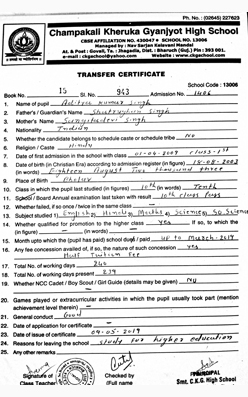 Ph. No.: (02645) 227623
Champakali Kheruka Gyanjyot High School
CBSE AFFILIATION NO. 430047 • SCHOOL NO. 13006
Managed by : Nav Sarjan Kelavani Mandal
At. & Post : Govali, Ta. : Jhagadia, Dist. : Bharuch (Guj.) Pin : 393 001.
Website : www.ckgschool.com
TRANSFER CERTIFICATE
School Code : 13006
Book No. 15 Sl. No. 943 Admission No.
1. Name of pupil Aditya Kumar Singh
2. Father's / Guardian's Name Singh
3. Mother's Name Singh
4. Nationality Indian
5. Whether the candidate belongs to schedule caste or schedule tribe No
6. Religion / Caste Hindu
7. Date of first admission in the school with class
8. Date of birth (in Christian Era) according to admission register (in figure) 18-08-2003
(in words) Eighteen August Two thousand three
9. Place of
10. Class in which the pupil last studied (in figure) 10th (in words) Tenth
11. School / Board Annual examination last taken with result 10th class Pass
12. Whether failed, if so / once / twice in the same class
13. Subject studied English Hindi Maths Science
14. Whether qualified for promotion to the higher class Yes if so, to which the
(in figure) (in words)
15. Month upto which the (pupil has paid) school dues / paid UP to March-2019
16. Any fee concession availed of, if so, the nature of such concession Yes
Half Tuition Fee
17. Total No. of working days 240
18. Total No. of working days present 239
19. Whether NCC Cadet / Boy Scout / Girl Guide (details may be given) No
20. Games played or extracurricular activities in which the pupil usually took part (mention
achievement level therein)
21. General conduct Good
22. Date of application for certificate
23. Date of issue of certificate 04-05-2019
24. Reasons for leaving the school study for higher education
25. Any other remarks
Signature of
Class Teacher
Checked by
(Full name
PRINCIPAL
Smt. C.K.G. High School